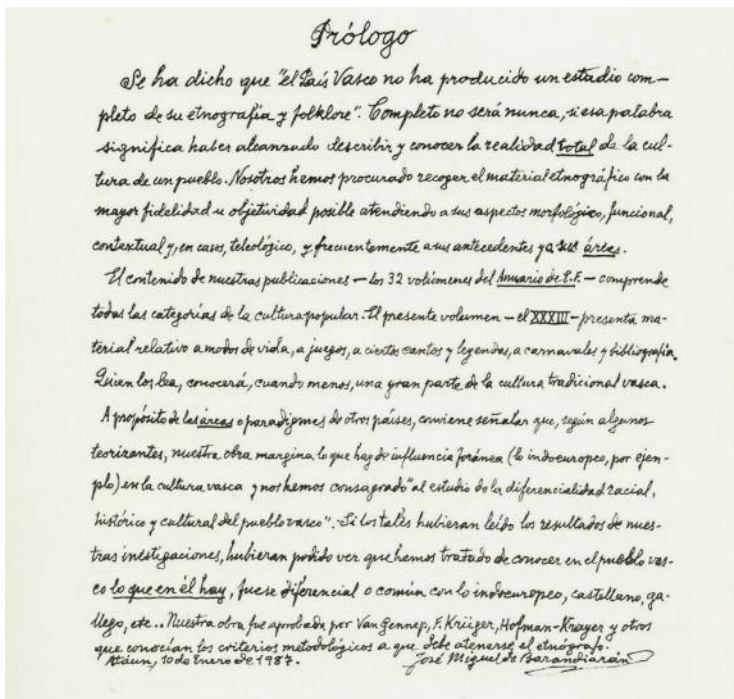 Prólogo
Se ha dicho que "el País Vasco no ha producido un estadio com-
pleto de su etnografía y folklore". Completo no será nunca, si esa palabra
significa haber alcanzado describir y conocer la realidad total de la cul-
tura de un pueblo. Nosotros hemos procurado recoger el material etnográfico con la
mayor fidelidad u objetividad posible atendiendo a sus aspectos morfológico, funcional,
contextual y, en casos, teleológico, y frecuentemente a sus antecedentes y a sus áreas.
El contenido de nuestras publicaciones - los 32 volúmenes del Anuario de E.F. - comprende
todas las categorías de la cultura popular. El presente volumen - el XXXIII - presenta ma-
terial relativo a modos de vida, a juegos, a ciertos cantos y leyendas, a carnavales y bibliografía.
Quien los lea, conocerá, cuando menos, una gran parte de la cultura tradicional vasca.
A propósito de las áreas o paradigmes de otros países, conviene señalar que, según algunos
teorizantes, nuestra obra margina lo que hay de influencia foránea (lo indoeuropeo, por ejem-
plo) en la cultura vasca y nos hemos consagrado "al estudio de la diferencialidad racial,
histórico y cultural del pueblo vasco". - Si los tales hubieran leído los resultados de nues-
tras investigaciones, hubieran podido ver que hemos tratado de conocer en el pueblo vas-
co lo que en él hay, fuese diferencial o común con lo indoeuropeo, castellano, ga-
llego, etc.. Nuestra obra fue aprobada por Van Gennep, F. Krüger, Hofman-Krayer y otros
que conocían los criterios metodológicos a que debe atenerse el etnógrafo.
Ataun, 10 de Enero de 1987. José Miguel de Barandiarán